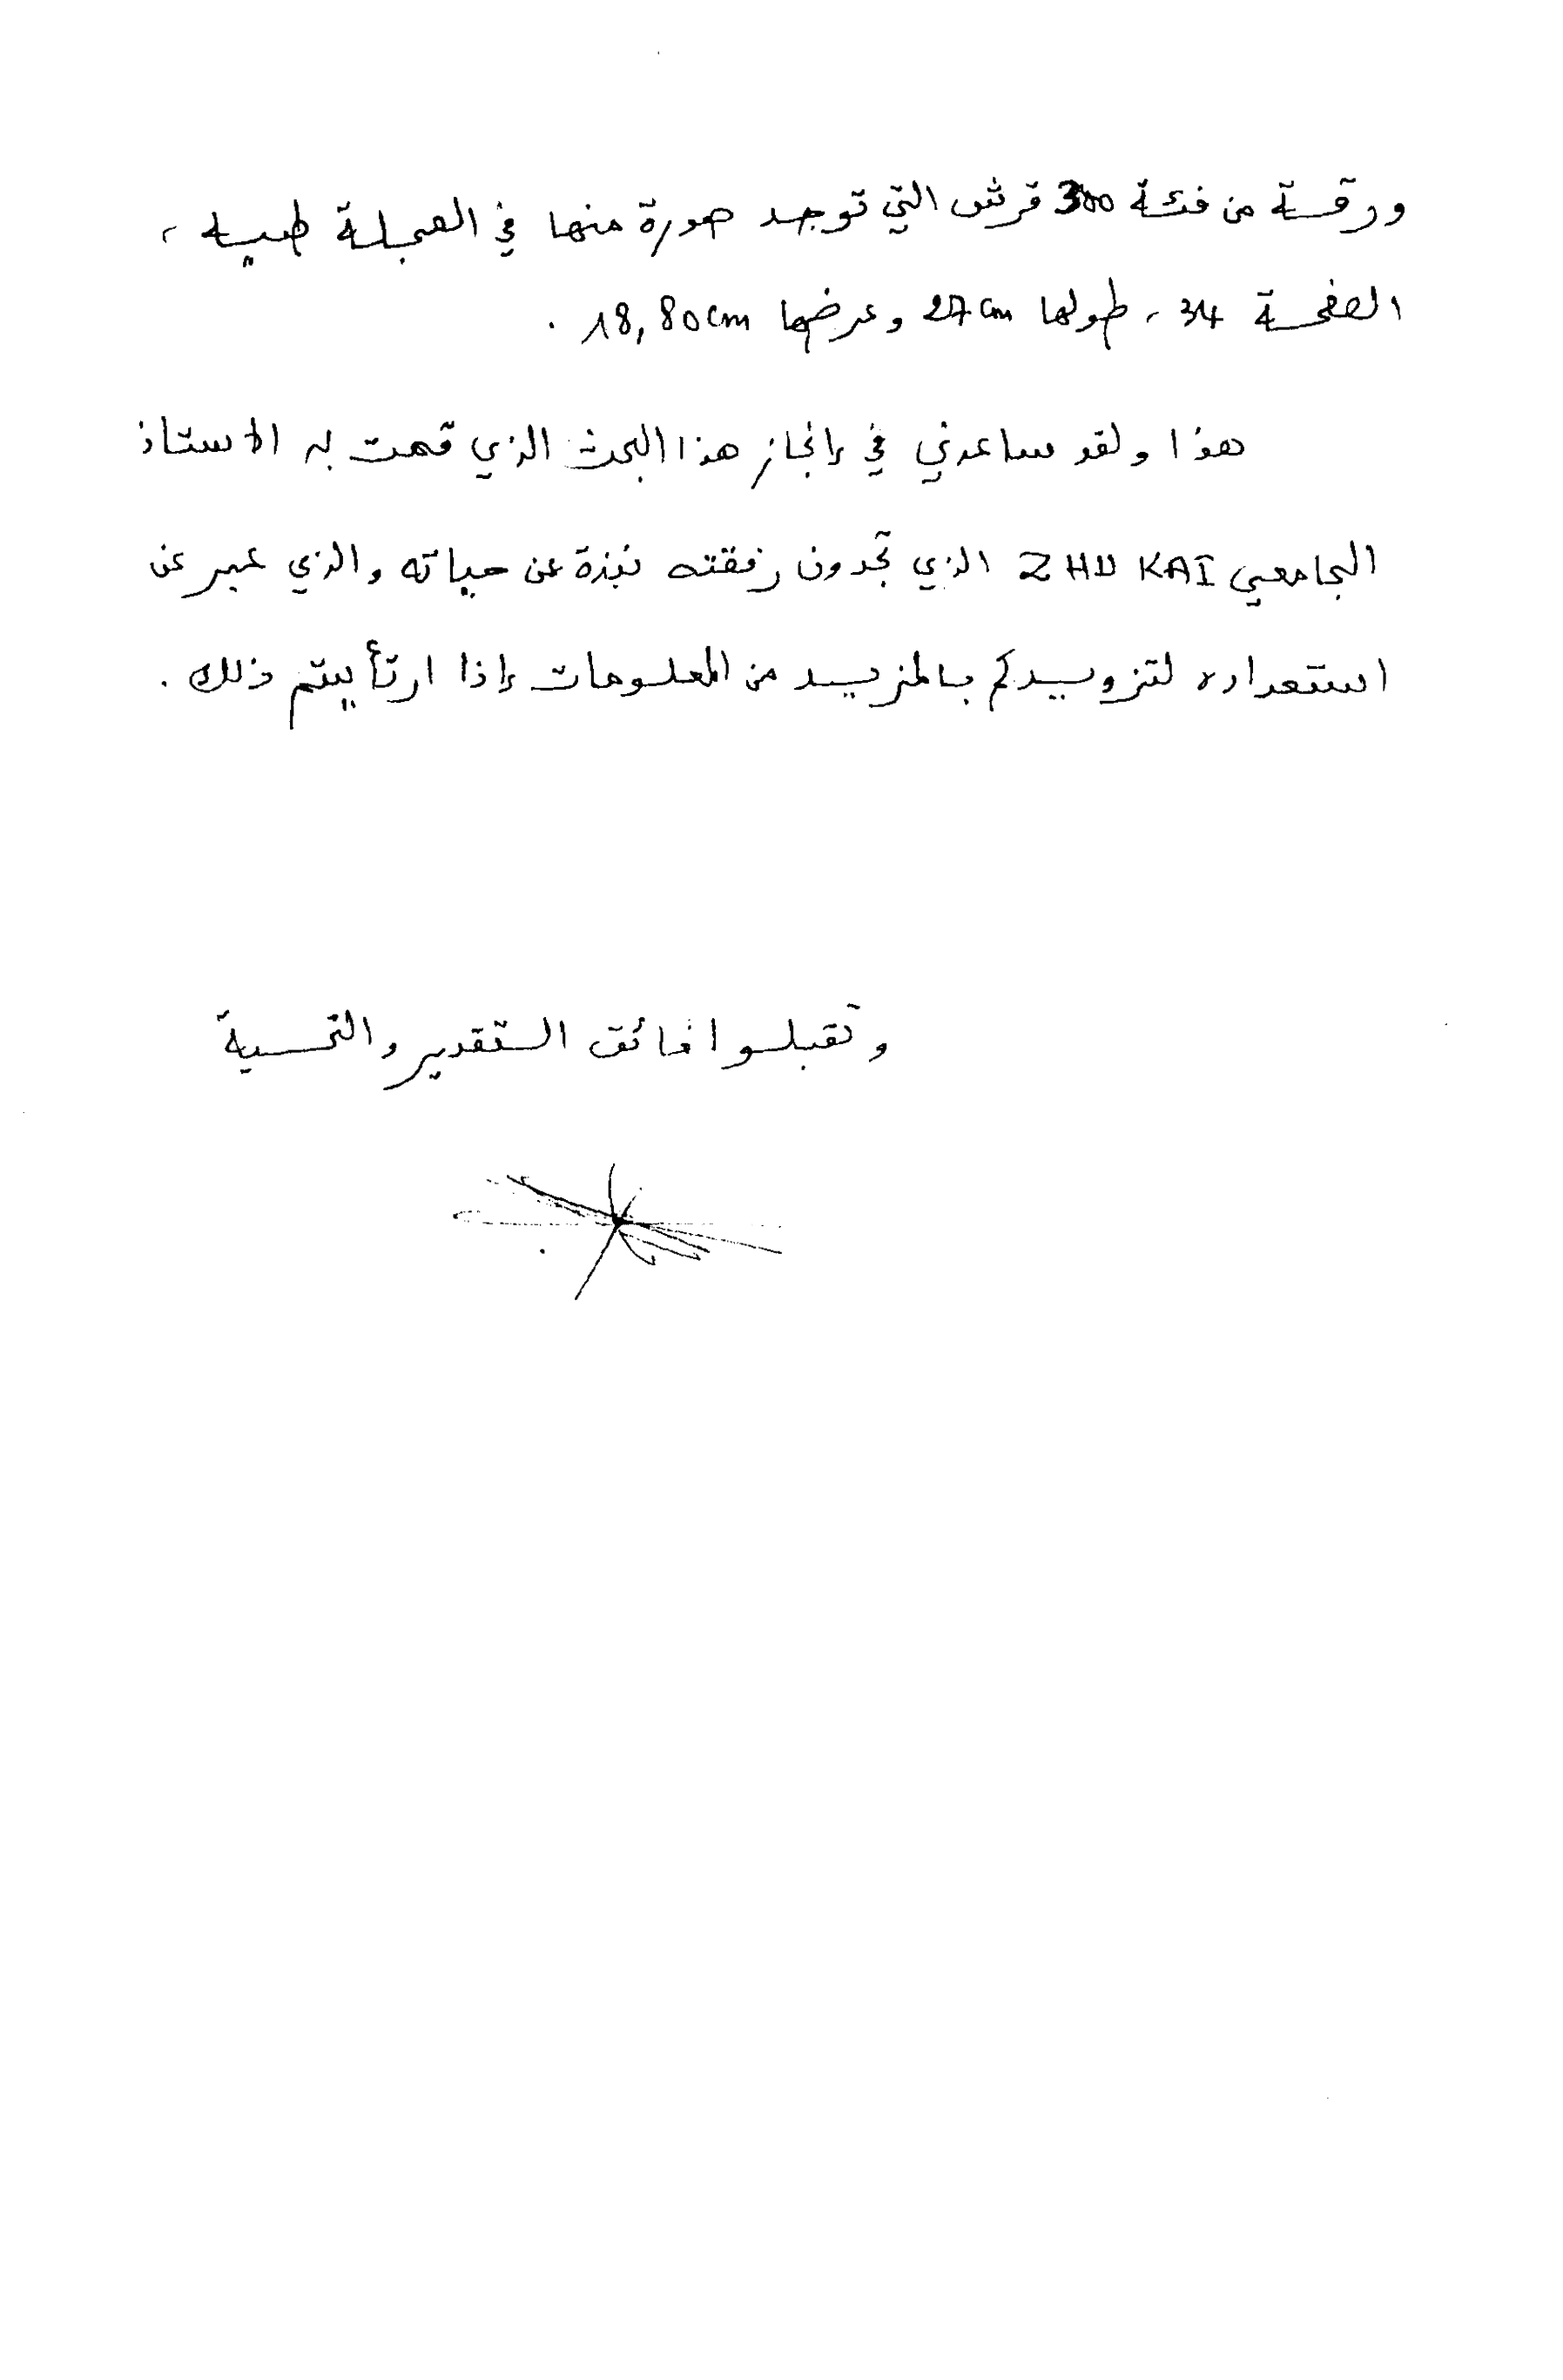 ورقة من فئة 300 قرش التي توجد صورة منها في المجلة طيه ،
الصفحة 34 ، طولها 27 cm وعرضها 18,80 cm .
هذا ولقد ساعدني في إنجاز هذا البحث الذي قمت به الاستاذ
الجامعي ZHU KAI الذي تجدون رفقته نبذة عن حياته والذي عبر عن
استعداده لتزويدكم بالمزيد من المعلومات إذا ارتأيتم ذلك .
وتقبلوا فائق التقدير والتحية